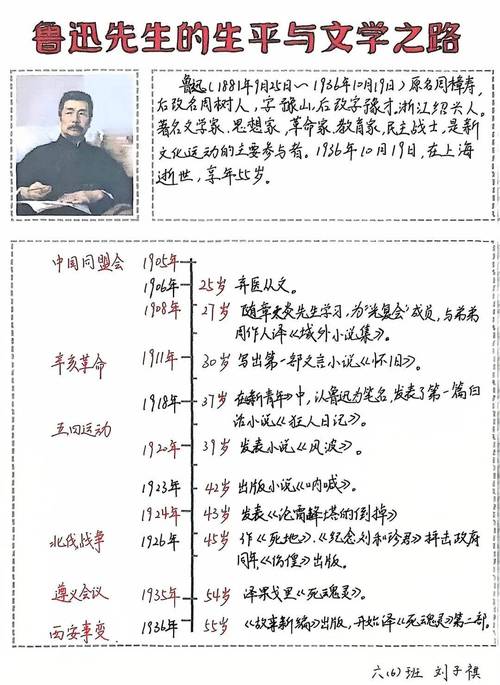 鲁迅先生的生平与文学之路
鲁迅(1881年9月25日～1936年10月19日)原名周樟寿,
后改名周树人,字豫山,后改字豫才,浙江绍兴人。
著名文学家、思想家、革命家、教育家、民主战士,是新
文化运动的主要参与者。1936年10月19日,在上海
逝世,享年55岁。
中国同盟会 1905年
1906年 25岁 弃医从文。
1908年 27岁 随章太炎先生学习,为“光复会”成员,与弟弟
周作人译《域外小说集》。
辛亥革命 1911年 30岁 写出第一部文言小说《怀旧》。
1918年 37岁 在《新青年》中,以鲁迅为笔名,发表了第一篇白
话小说《狂人日记》。
五四运动
1920年 39岁 发表小说《风波》。
1923年 42岁 出版小说《呐喊》。
1924年 43岁 发表《论雷峰塔的倒掉》
北伐战争 1926年 45岁 作《死地》、《纪念刘和珍君》抨击政府
同年《彷徨》出版。
遵义会议 1935年 54岁 译果戈里《死魂灵》。
西安事变 1936年 55岁 《故事新编》出版,开始译《死魂灵》第二部.
六(6)班 刘子祺